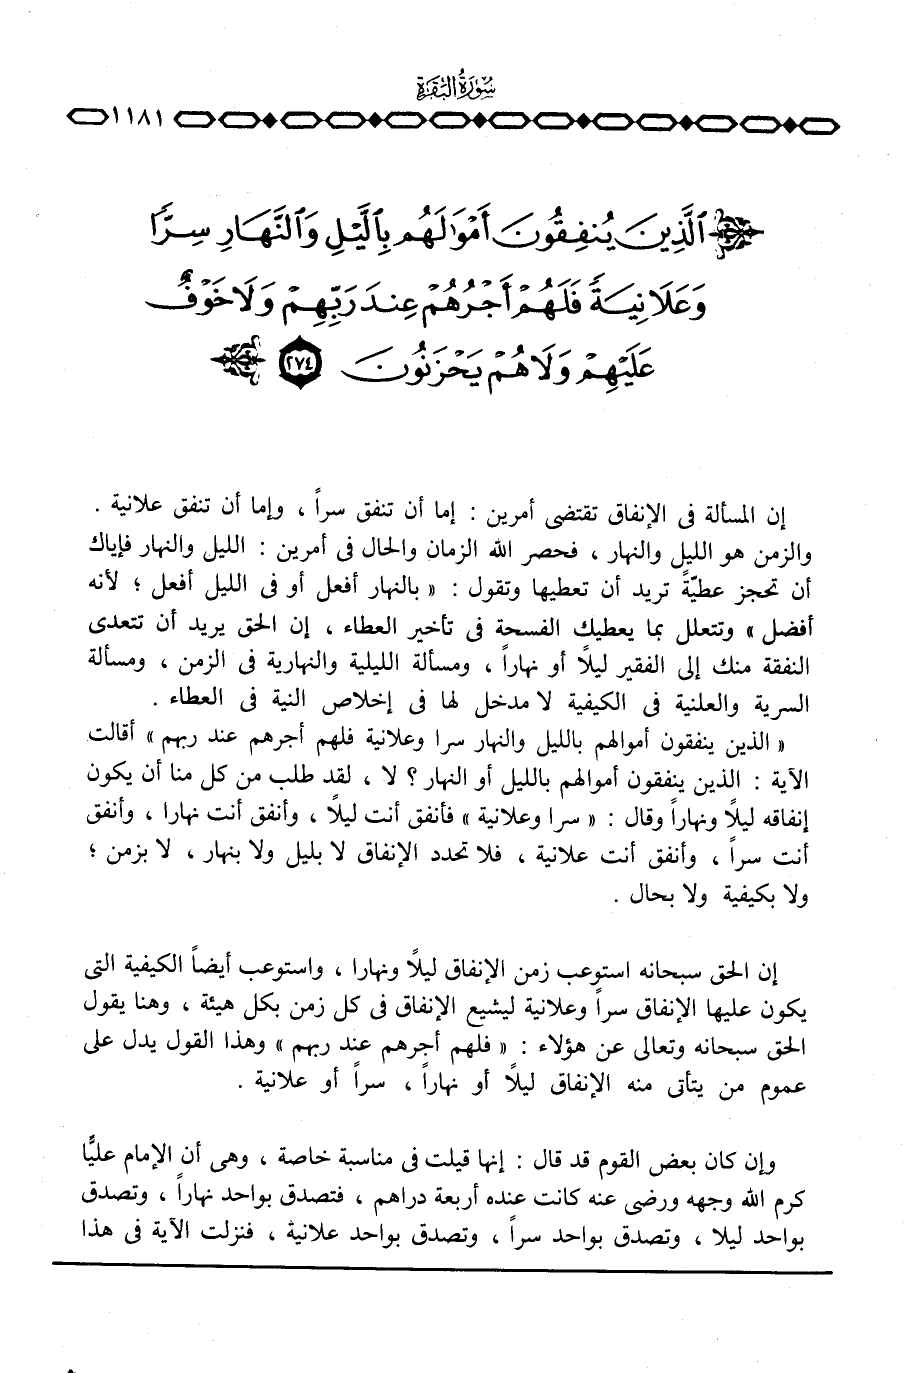 سُورَةُ البَقَرَةِ
١١٨١
ٱلَّذِينَ يُنفِقُونَ أَمْوَٰلَهُم بِٱلَّيْلِ وَٱلنَّهَارِ سِرًّا
وَعَلَانِيَةً فَلَهُمْ أَجْرُهُمْ عِندَ رَبِّهِمْ وَلَا خَوْفٌ
عَلَيْهِمْ وَلَا هُمْ يَحْزَنُونَ ٢٧٤
إن المسألة فى الإنفاق تقتضى أمرين : إما أن تنفق سراً ، وإما أن تنفق علانية .
والزمن هو الليل والنهار ، فحصر الله الزمان والحال فى أمرين : الليل والنهار فإياك
أن تحجز عطيّةً تريد أن تعطيها وتقول : « بالنهار أفعل أو فى الليل أفعل ؛ لأنه
أفضل » وتتعلل بما يعطيك الفسحة فى تأخير العطاء ، إن الحق يريد أن تتعدى
النفقة منك إلى الفقير ليلًا أو نهاراً ، ومسألة الليلية والنهارية فى الزمن ، ومسألة
السرية والعلنية فى الكيفية لا مدخل لها فى إخلاص النية فى العطاء .
« الذين ينفقون أموالهم بالليل والنهار سرا وعلانية فلهم أجرهم عند ربهم » أقالت
الآية : الذين ينفقون أموالهم بالليل أو النهار ؟ لا ، لقد طلب من كل منا أن يكون
إنفاقه ليلًا ونهاراً وقال : « سرا وعلانية » فأنفق أنت ليلًا ، وأنفق أنت نهارا ، وأنفق
أنت سراً ، وأنفق أنت علانية ، فلا تحدد الإنفاق لا بليل ولا بنهار ، لا بزمن ؛
ولا بكيفية ولا بحال .
إن الحق سبحانه استوعب زمن الإنفاق ليلًا ونهارا ، واستوعب أيضاً الكيفية التى
يكون عليها الإنفاق سراً وعلانية ليشيع الإنفاق فى كل زمن بكل هيئة ، وهنا يقول
الحق سبحانه وتعالى عن هؤلاء : « فلهم أجرهم عند ربهم » وهذا القول يدل على
عموم من يتأتى منه الإنفاق ليلًا أو نهاراً ، سراً أو علانية .
وإن كان بعض القوم قد قال : إنها قيلت فى مناسبة خاصة ، وهى أن الإمام عليًّا
كرم الله وجهه ورضى عنه كانت عنده أربعة دراهم ، فتصدق بواحد نهاراً ، وتصدق
بواحد ليلا ، وتصدق بواحد سراً ، وتصدق بواحد علانية ، فنزلت الآية فى هذا